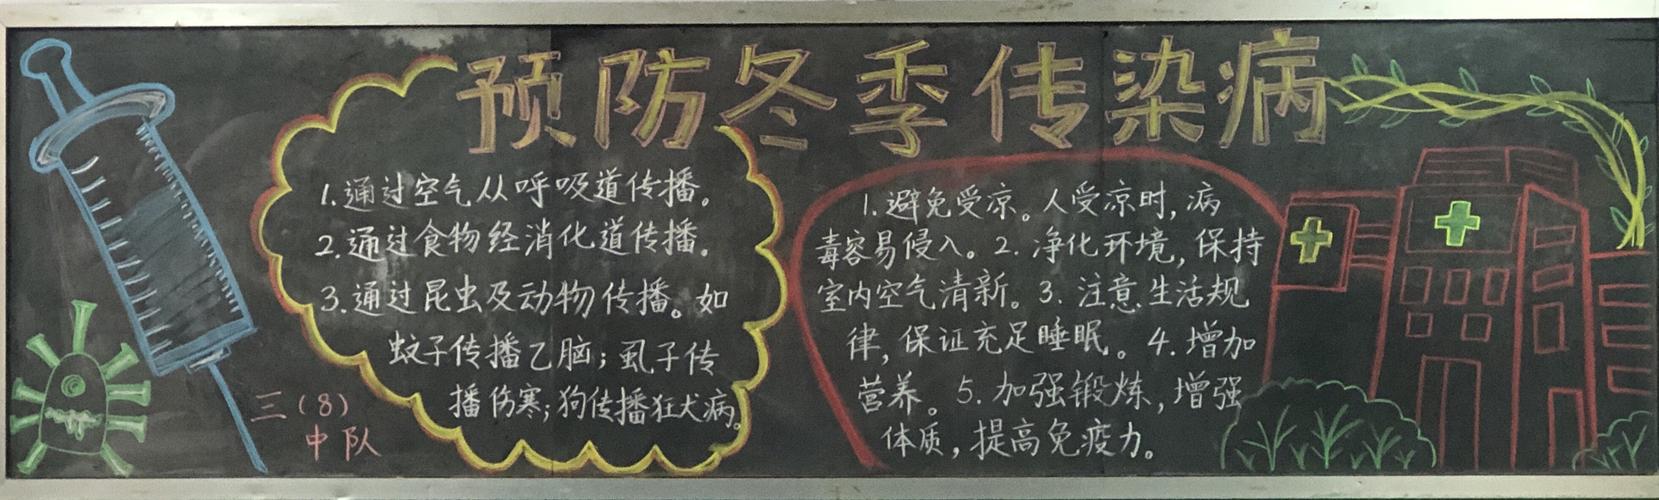 预防冬季传染病
1.通过空气从呼吸道传播。
2.通过食物经消化道传播。
3.通过昆虫及动物传播。如
蚊子传播乙脑；虱子传
播伤寒；狗传播狂犬病。
三（8）
中队
1.避免受凉。人受凉时，病
毒容易侵入。2.净化环境，保持
室内空气清新。3.注意生活规
律，保证充足睡眠。4.增加
营养。5.加强锻炼，增强
体质，提高免疫力。